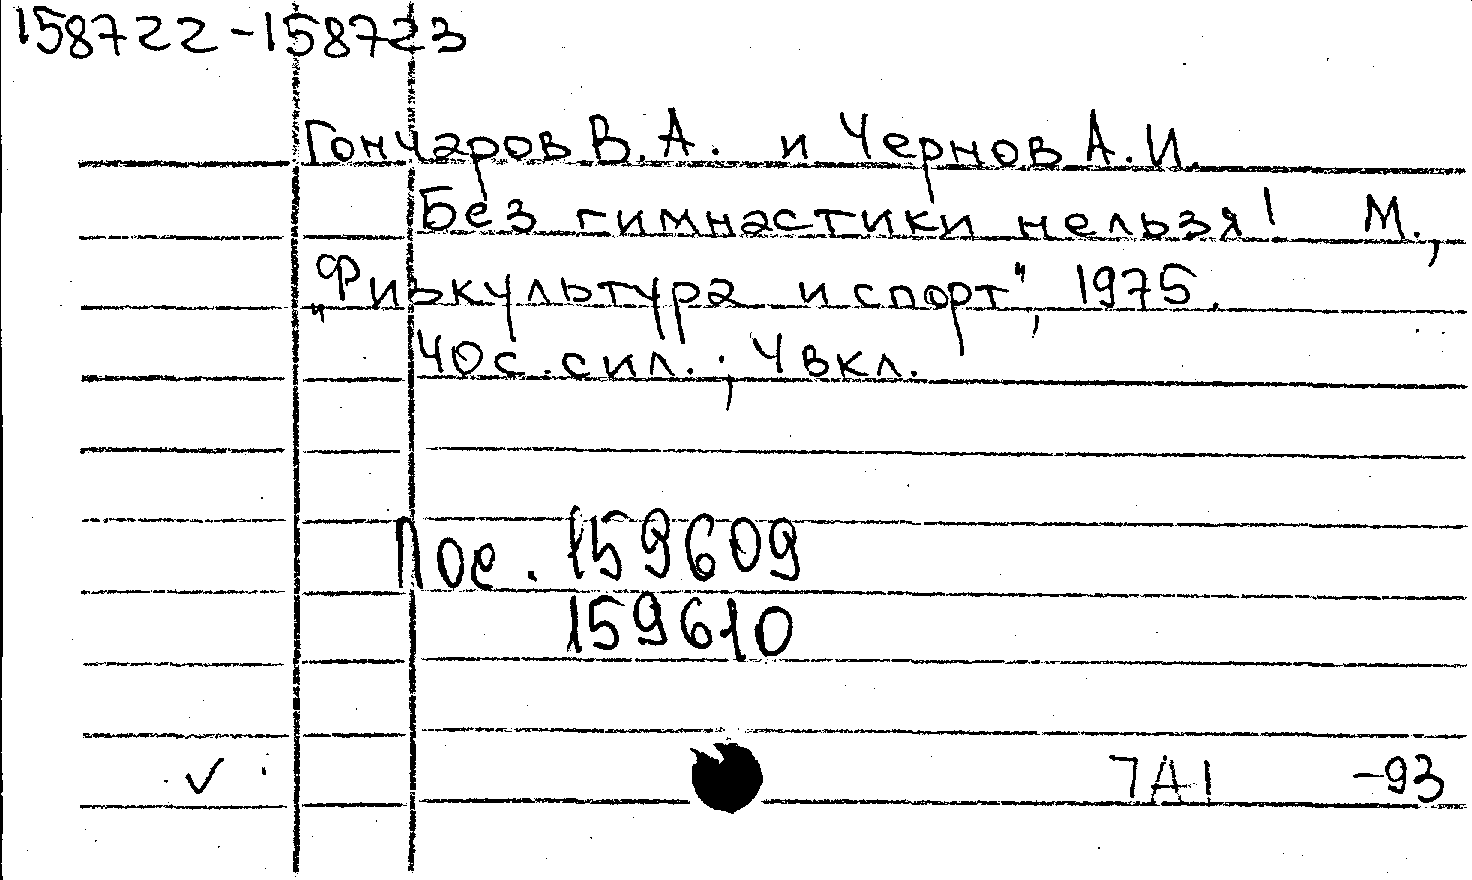 158722-158723
Гончаров В.А. и Чернов А.И.
Без гимнастики нельзя! М.,
„Физкультура и спорт", 1975.
40 с. с ил.; 4 вкл.
Пос. 159609
159610
7А1 -93